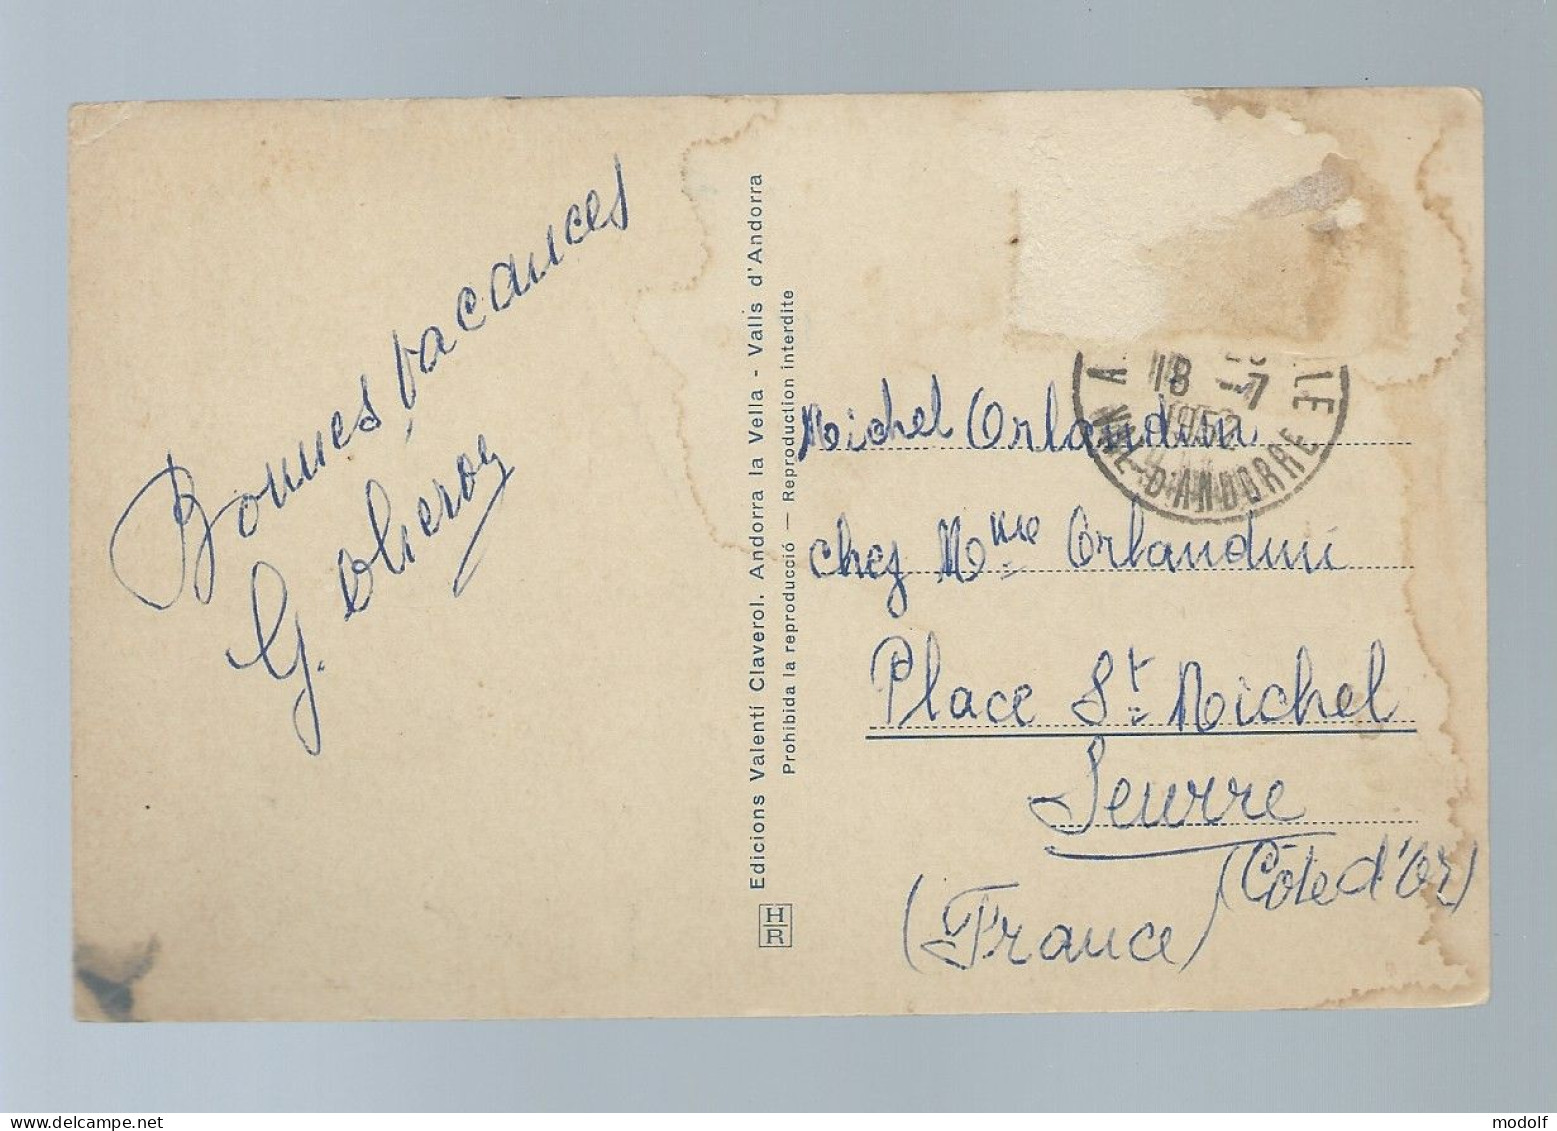 Bonnes vacances
G.
Edicions Valentí Claverol. Andorra la Vella - Valls d'Andorra
Prohibida la reproducció — Reproduction interdite
HR
18 -7
1952
VAL D'ANDORRE
Michel Orlandini
chez Mme Orlandini
Place St Michel
Seurre
(Côte d'Or)
(France)
modolf